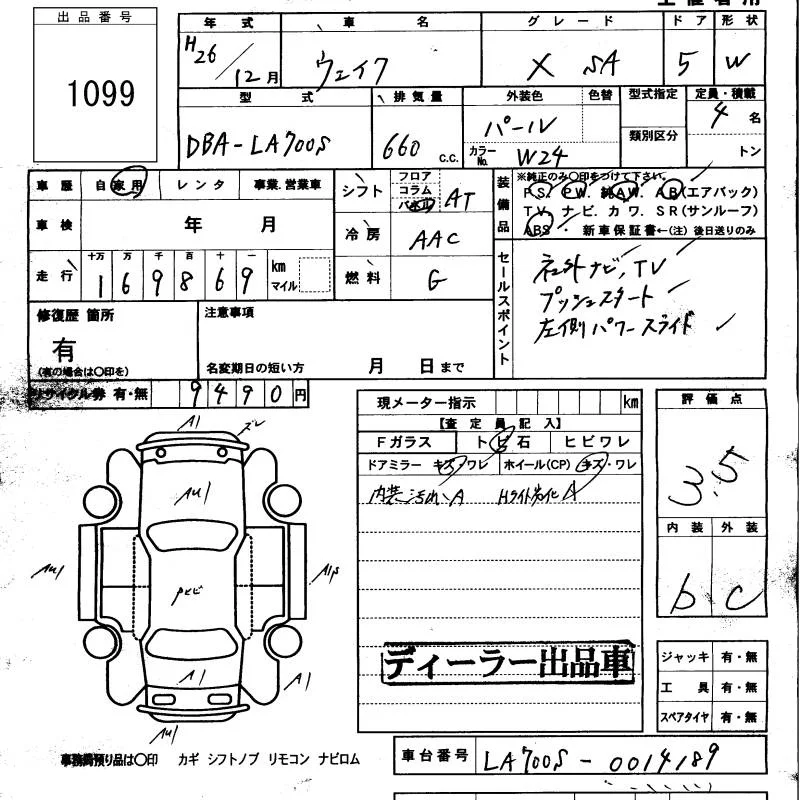 出品番号
1099
年式 車名 グレード ドア 形状
H26/12月 ウェイク X SA 5 W
型式 排気量 外装色 色替 型式指定 定員・積載
DBA-LA700S 660 c.c. パール 類別区分 4名
カラーNo. W24 トン
車歴 自家用 レンタ 事業.営業車
車検 年 月
走行 十万 万 千 百 十 一
169869 km マイル
シフト フロア コラム パネル AT
冷房 AAC
燃料 G
装備品 ※純正のみ〇印をつけて下さい。
PS. PW. 純AW. AB(エアバック)
TV. ナビ. カワ. SR(サンルーフ)
ABS 新車保証書←(注)後日送りのみ
セールスポイント
ネット外ナビ,TV
プッシュスタート
左側パワースライド
修復歴 箇所
有
(有の場合は〇印を)
注意事項
名変期日の短い方 月 日まで
リサイクル券 有・無 9490円
現メーター指示 km
【査定員記入】
Fガラス トビ石 ヒビワレ
ドアミラー キズ・ワレ ホイール(CP) キズ・ワレ
内装汚れA Hライト劣化A
評価点
3.5
内装 外装
b c
A1
AU1
AU1
A1
A1
AU1
ディーラー出品車
ジャッキ 有・無
工具 有・無
スペアタイヤ 有・無
事務局預り品は〇印 カギ シフトノブ リモコン ナビロム
車台番号 LA700S-0014189